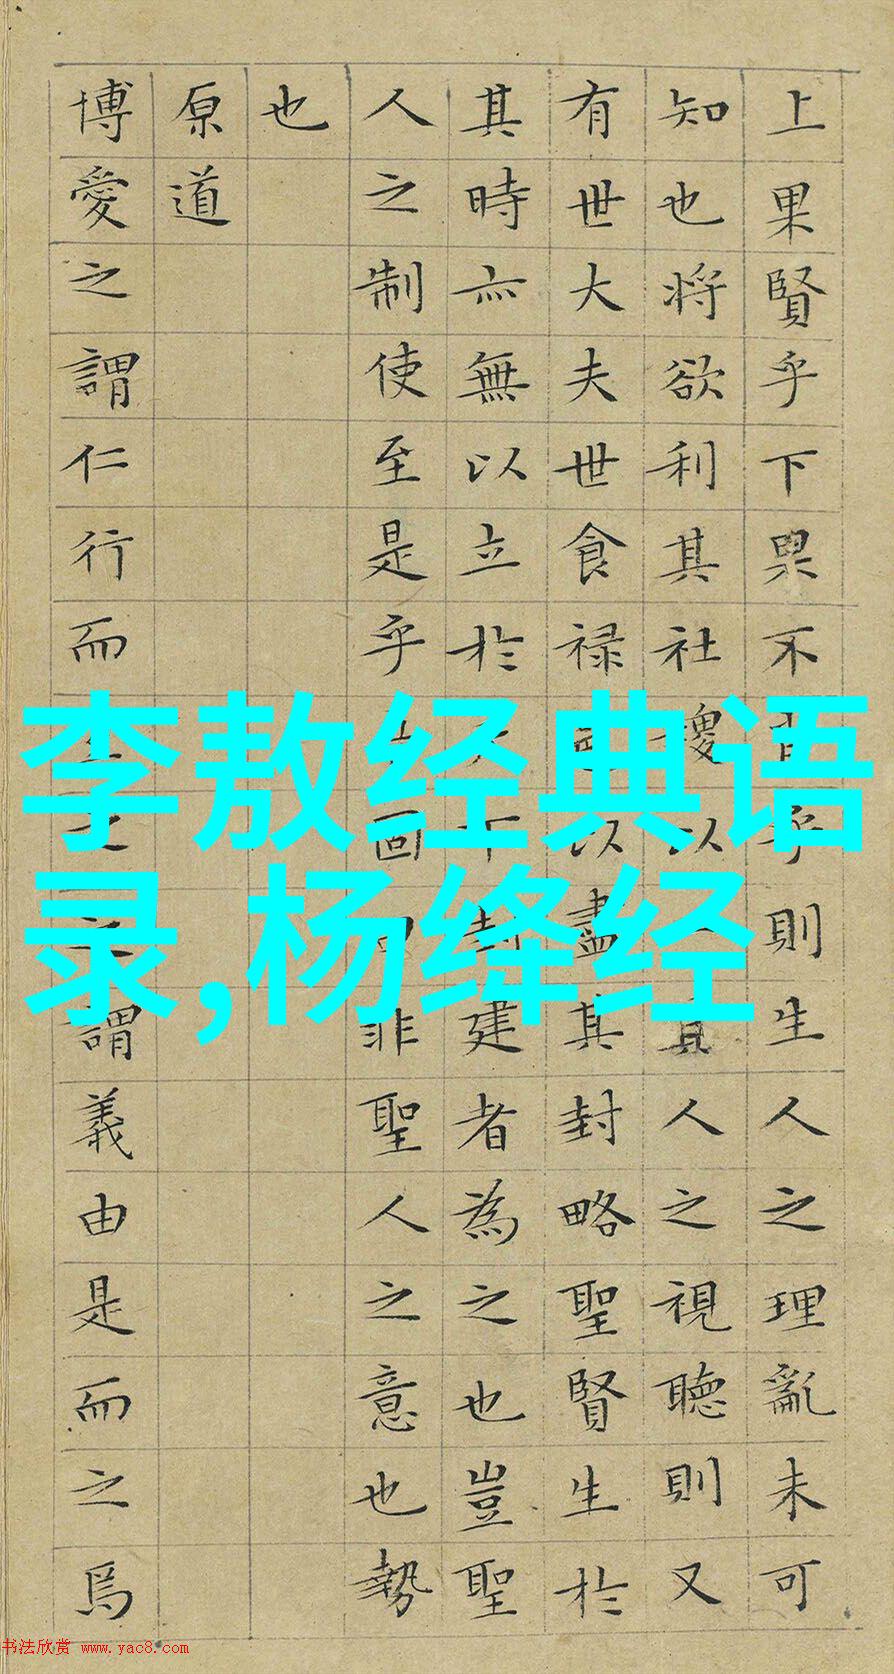 上果賢乎下果不肖乎則生人之理亂未可
知也將欲利其社稷以一其人之視聽則又
有世大夫世食祿邑以盡其封略聖賢生於
其時亦無以立於天下封建者為之也豈聖
人之制使至是乎吾固曰非聖人之意也勢
也
原道
博愛之謂仁行而宜之之謂義由是而之焉
李敖经典语
录,杨绛经
书法欣赏 www.yac8.com